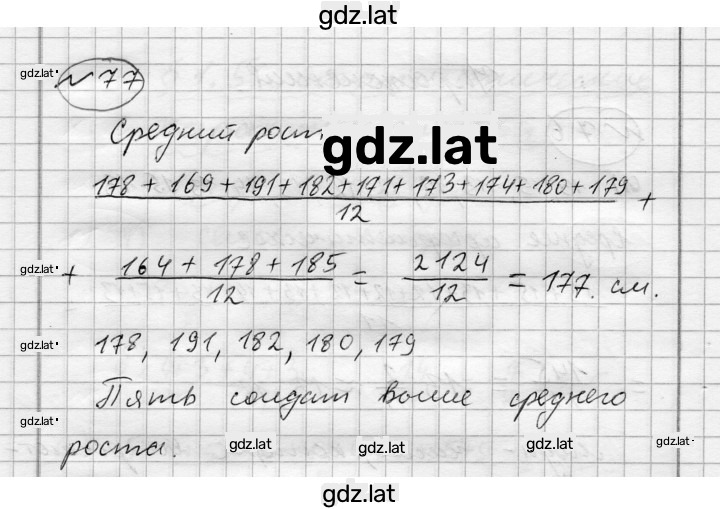 gdz.lat
gdz.lat
№77
Средний рост
gdz.lat
178 + 169 + 191 + 182 + 171 + 173 + 174 + 180 + 179 +
12
gdz.lat
+ 164 + 178 + 185 = 2124 = 177. см.
12 12
gdz.lat
178, 191, 182, 180, 179
Пять солдат выше среднего
gdz.lat
роста.
gdz.lat gdz.lat gdz.lat gdz.lat
gdz.lat